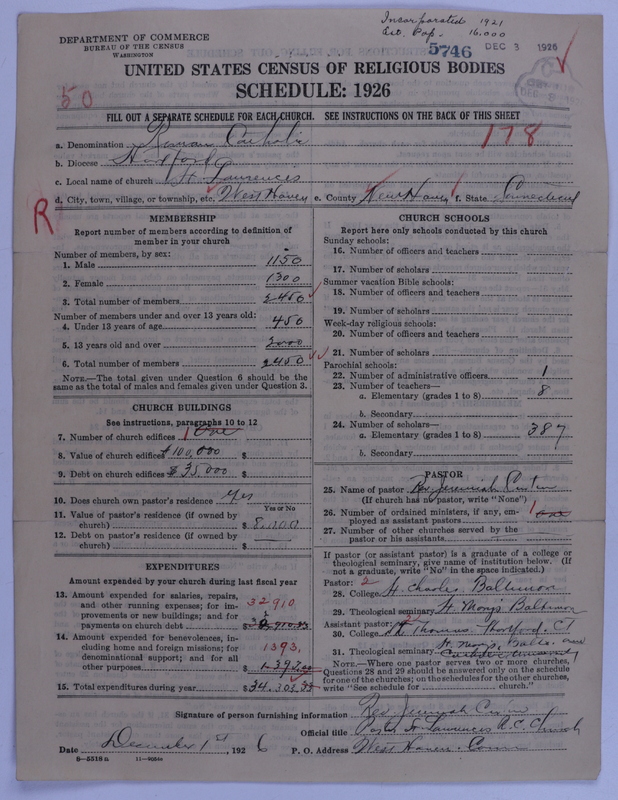 Incorporated 1921
Est. Pop. 16,000
DEPARTMENT OF COMMERCE
BUREAU OF THE CENSUS
WASHINGTON
5746 DEC 3 1926
UNITED STATES CENSUS OF RELIGIOUS BODIES
SCHEDULE: 1926
50
FILL OUT A SEPARATE SCHEDULE FOR EACH CHURCH. SEE INSTRUCTIONS ON THE BACK OF THIS SHEET
178
a. Denomination Roman Catholic
b. Diocese Hartford
c. Local name of church St. Lawrences
d. City, town, village, or township, etc. West Haven e. County New Haven f. State Connecticut
R
MEMBERSHIP
Report number of members according to definition of
member in your church
Number of members, by sex:
1. Male 1150
2. Female 1300
3. Total number of members 2450
Number of members under and over 13 years old:
4. Under 13 years of age 450
5. 13 years old and over 2000
6. Total number of members 2450
NOTE.—The total given under Question 6 should be the
same as the total of males and females given under Question 3.
CHURCH BUILDINGS
See instructions, paragraphs 10 to 12
7. Number of church edifices 1 One
8. Value of church edifices $100,000 $
9. Debt on church edifices $35,000 $
10. Does church own pastor's residence Yes
Yes or No
11. Value of pastor's residence (if owned by
church) $ 8,000
12. Debt on pastor's residence (if owned by
church) $
EXPENDITURES
Amount expended by your church during last fiscal year
13. Amount expended for salaries, repairs,
and other running expenses; for im-
provements or new buildings; and for
payments on church debt 32,910 $
14. Amount expended for benevolences, in-
cluding home and foreign missions; for
denominational support; and for all
other purposes 1393, $
15. Total expenditures during year $34,303.
CHURCH SCHOOLS
Report here only schools conducted by this church
Sunday schools:
16. Number of officers and teachers
17. Number of scholars
Summer vacation Bible schools:
18. Number of officers and teachers
19. Number of scholars
Week-day religious schools:
20. Number of officers and teachers
21. Number of scholars
Parochial schools:
22. Number of administrative officers 1
23. Number of teachers—
a. Elementary (grades 1 to 8) 8
b. Secondary
24. Number of scholars—
a. Elementary (grades 1 to 8) 387
b. Secondary
PASTOR
25. Name of pastor Rev. Jeremiah Curtin
(If church has no pastor, write "None")
26. Number of ordained ministers, if any, em-
ployed as assistant pastors 1 one
27. Number of other churches served by the
pastor or his assistants
If pastor (or assistant pastor) is a graduate of a college or
theological seminary, give name of institution below. (If
not a graduate, write "No" in the space indicated.)
Pastor: 2
28. College St. Charles, Baltimore
29. Theological seminary St. Marys Baltimore
Assistant pastor: 2
30. College St. Thomas Hartford, Ct
St. Marys, Balto. and
31. Theological seminary Catholic University
NOTE.—Where one pastor serves two or more churches,
Questions 28 and 29 should be answered only on the schedule
for one of the churches; on the schedules for the other churches,
write "See schedule for church."
Signature of person furnishing information Rev Jeremiah Curtin
Official title Pastor St. Lawrences R.C. Church
Date December 1st, 1926 P. O. Address West Haven. Conn
8—5518 a 11—9054a